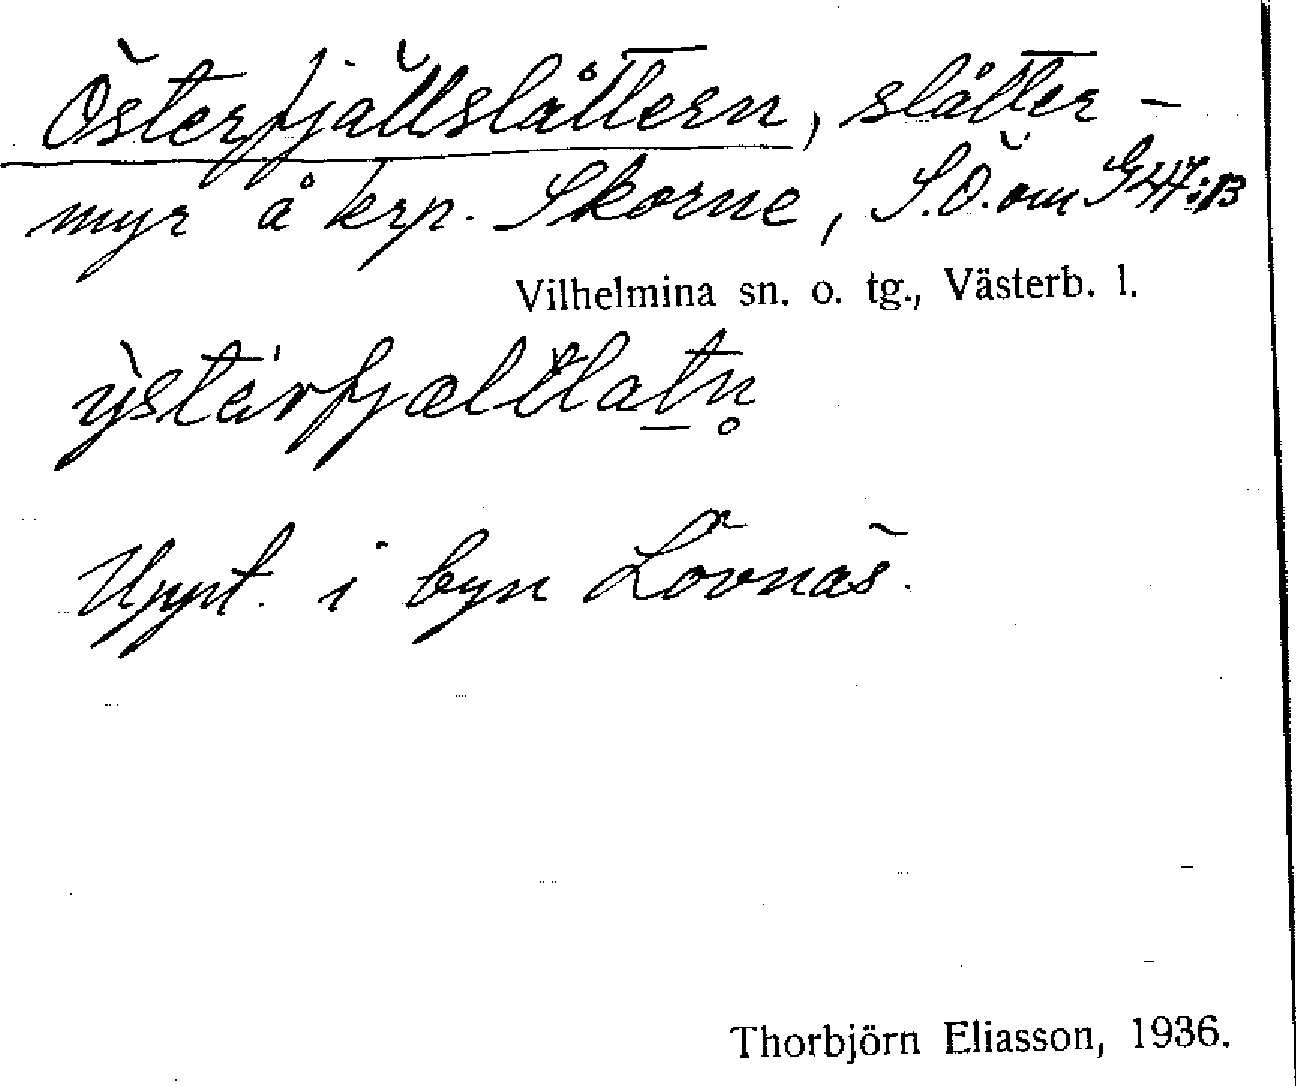 Österfjällslåttern, slåtter-
myr å krp. Skorne, S.Ö. om G 47:B
Vilhelmina sn. o. tg., Västerb. l.
Uppt. i byn Lövnäs.
Thorbjörn Eliasson, 1936.